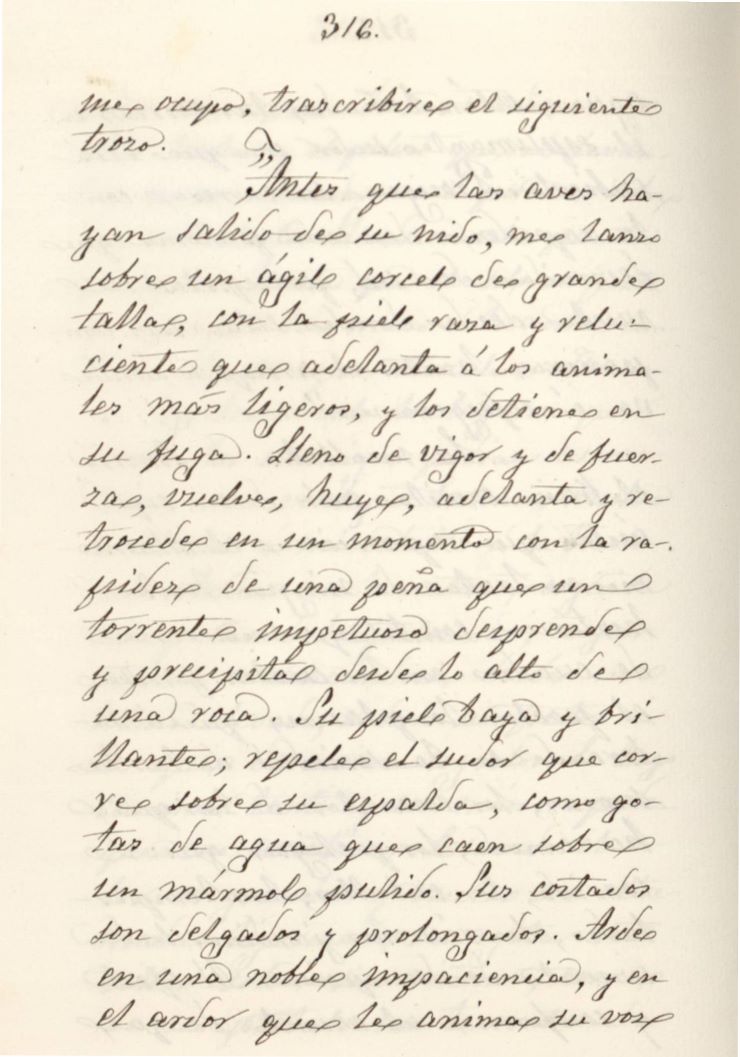 316.
me ocupa, trascribire el siguiente
trozo.
"Antes que las aves ha-
yan salido de su nido, me lanzo
sobre un ágil corcel de grande
talla, con la piel raza y relu-
ciente que adelanta á los anima-
les más ligeros, y los detiene en
su fuga. Lleno de vigor y de fuer-
za, vuelve, huye, adelanta y re-
trocede en un momento con la ra-
pidez de una peña que un
torrente impetuoso desprende
y precipita desde lo alto de
una roca. Su piel baya y bri-
llante; repele el sudor que cor-
re sobre su espalda, como go-
tas de agua que caen sobre
un mármol pulido. Sus costados
son delgados y prolongados. Arde
en una noble impaciencia, y en
el ardor que le anima su voz